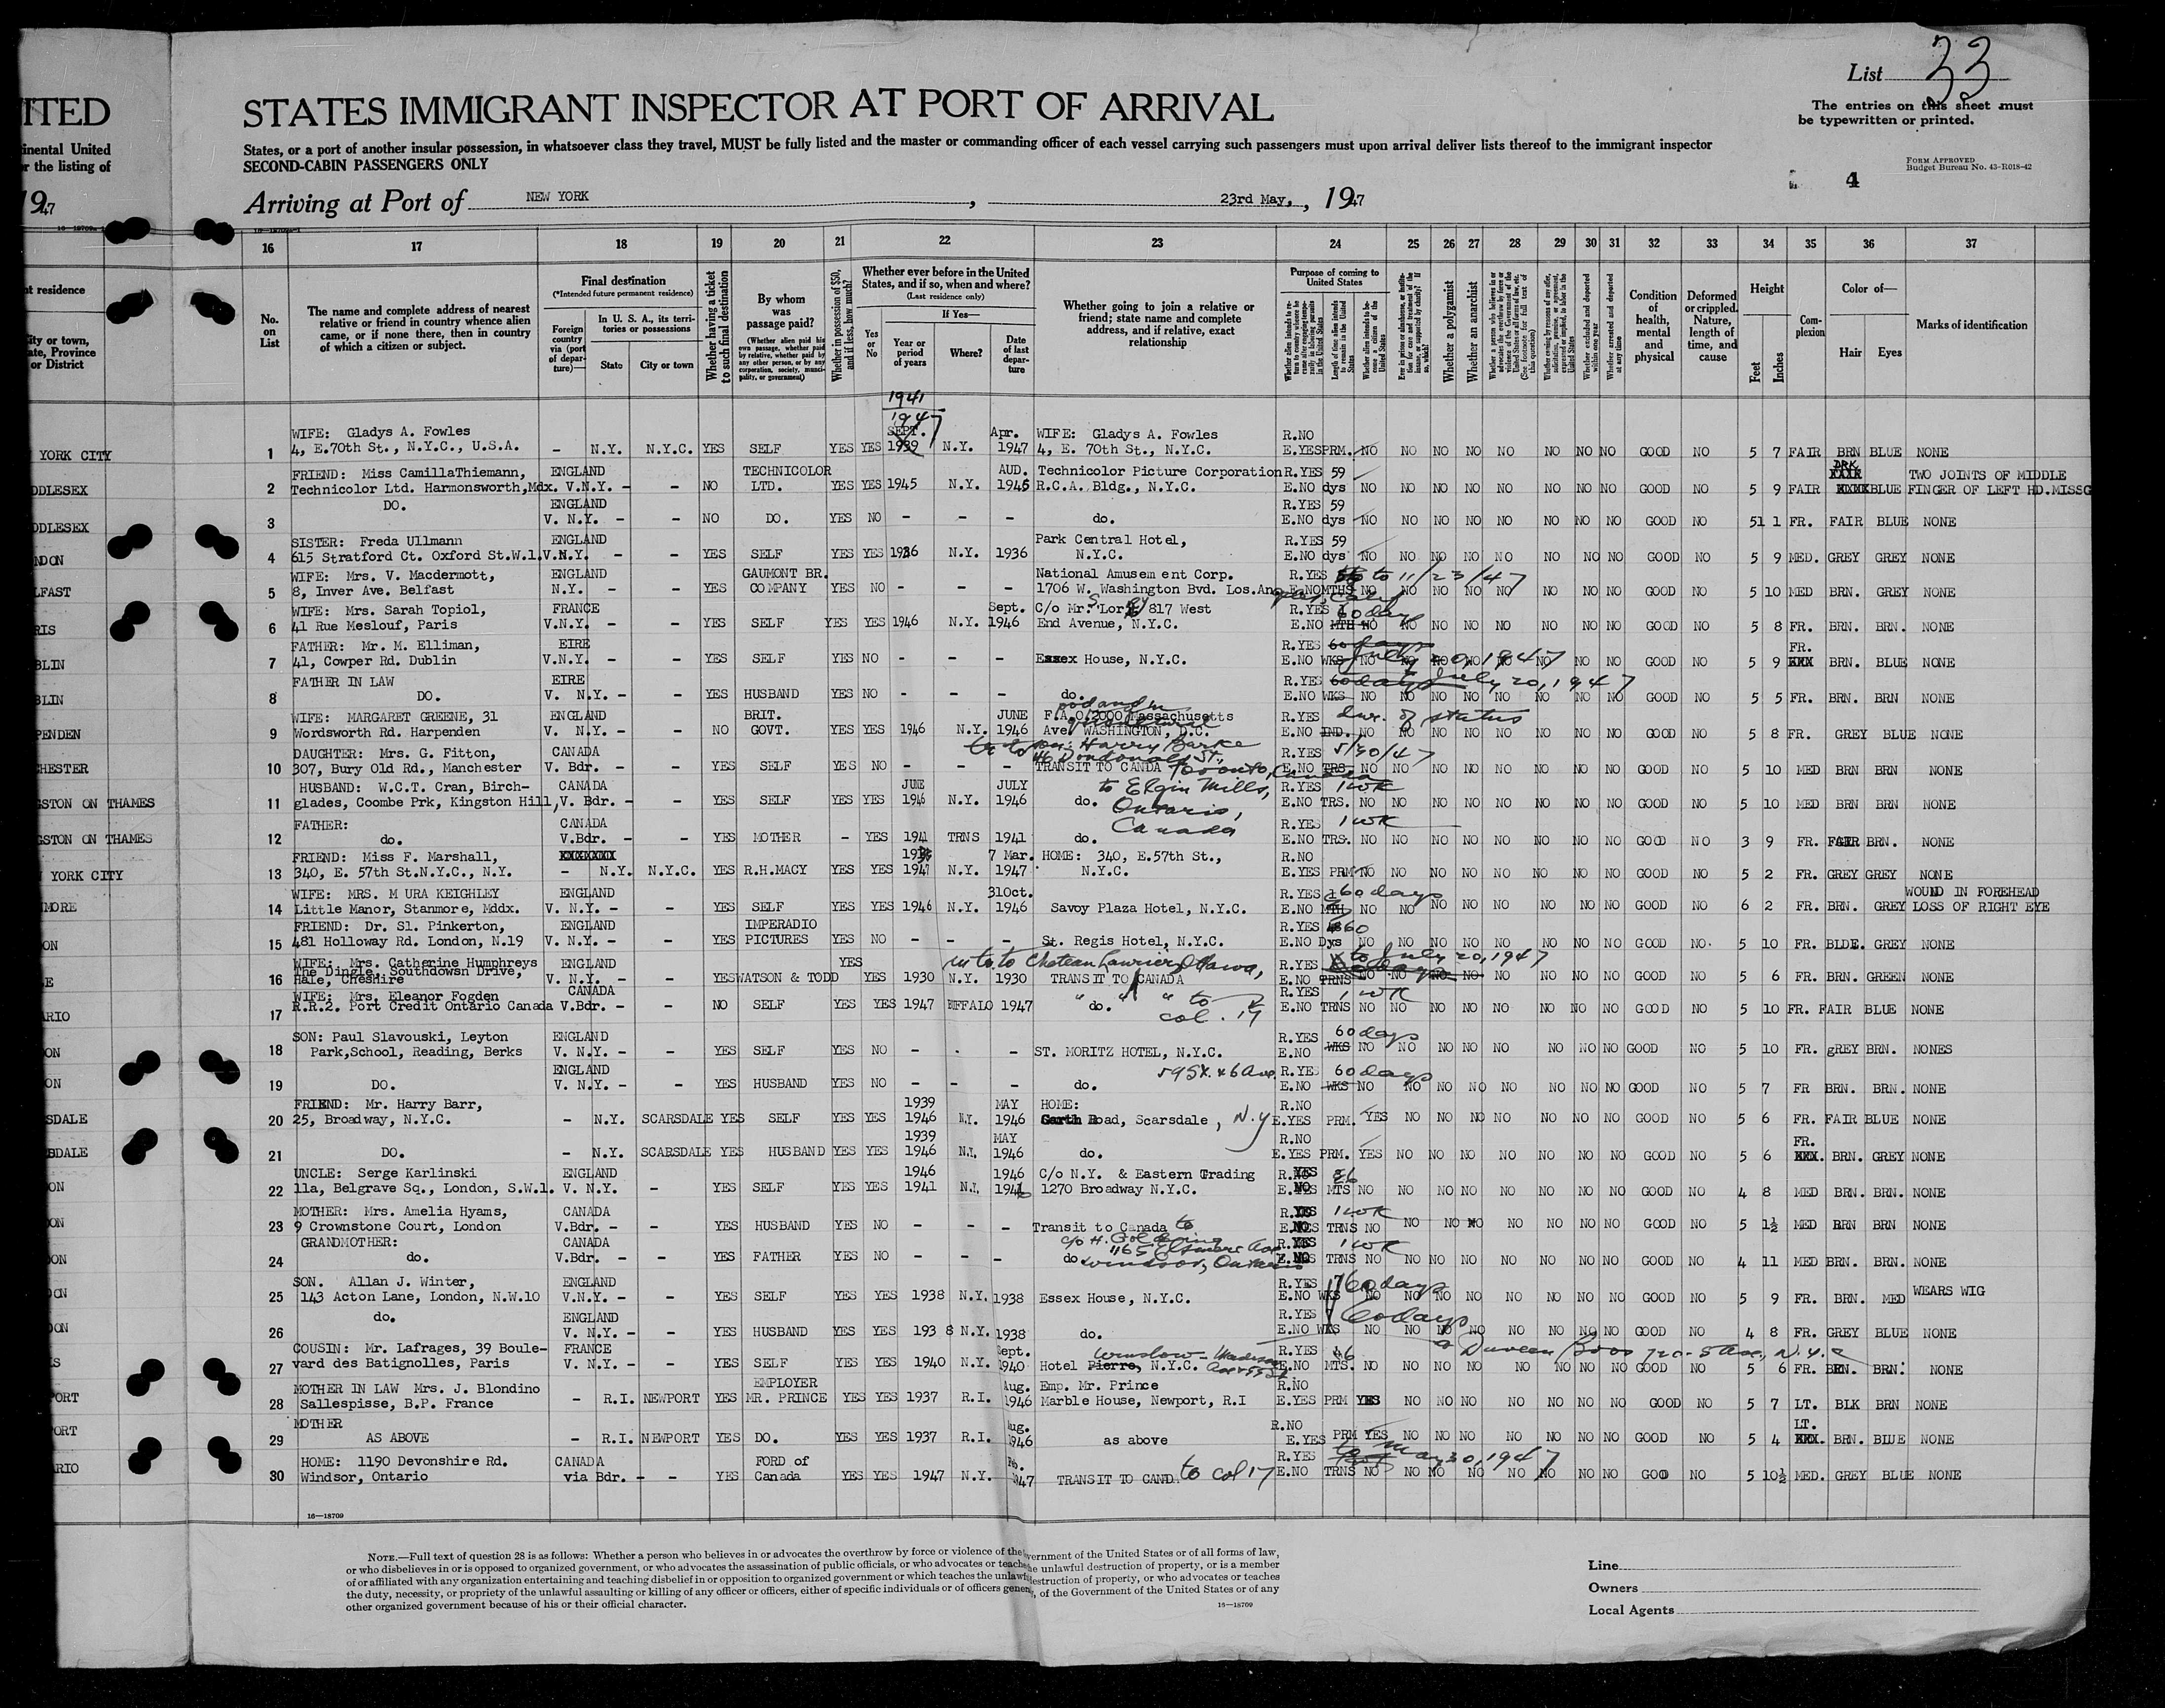 List 33
ITED
STATES IMMIGRANT INSPECTOR AT PORT OF ARRIVAL
The entries on this sheet must
be typewritten or printed.
inental United
r the listing of
States, or a port of another insular possession, in whatsoever class they travel, MUST be fully listed and the master or commanding officer of each vessel carrying such passengers must upon arrival deliver lists thereof to the immigrant inspector
SECOND-CABIN PASSENGERS ONLY
FORM APPROVED
Budget Bureau No. 43-R018-42
4
1947
Arriving at Port of NEW YORK, 23rd May, 1947
16 17 18 19 20 21 22 23 24 25 26 27 28 29 30 31 32 33 34 35 36 37
nt residence
City or town,
ate, Province
or District
No.
on
List
The name and complete address of nearest
relative or friend in country whence alien
came, or if none there, then in country
of which a citizen or subject.
Final destination
(*Intended future permanent residence)
Foreign
country
via (port
of depar-
ture)—
In U. S. A., its terri-
tories or possessions
State
City or town
Whether having a ticket
to such final destination
By whom
was
passage paid?
(Whether alien paid his
own passage, whether paid
by relative, whether paid by
any other person, or by any
corporation, society, munici-
pality, or government)
Whether in possession of $50,
and if less, how much?
Whether ever before in the United
States, and if so, when and where?
(Last residence only)
Yes
or
No
If Yes—
Year or
period
of years
Where?
Date
of last
depar-
ture
Whether going to join a relative or
friend; state name and complete
address, and if relative, exact
relationship
Purpose of coming to
United States
Whether a polygamist
Whether an anarchist
Condition
of
health,
mental
and
physical
Deformed
or crippled.
Nature,
length of
time, and
cause
Height
Feet
Inches
Com-
plexion
Color of—
Hair
Eyes
Marks of identification
1941
1947
SEPT.
WIFE: Gladys A. Fowles Apr. WIFE: Gladys A. Fowles R.NO
YORK CITY 1 4, E.70th St., N.Y.C., U.S.A. – N.Y. N.Y.C. YES SELF YES YES 1939 N.Y. 1947 4, E. 70th St., N.Y.C. E.YES PRM. NO NO NO NO NO NO NO NO GOOD NO 5 7 FAIR BRN BLUE NONE
FRIEND: Miss CamillaThiemann, ENGLAND TECHNICOLOR AUD. Technicolor Picture Corporation R.YES 59 DRK TWO JOINTS OF MIDDLE
DDLESEX 2 Technicolor Ltd. Harmonsworth,Mdx. V.N.Y. – – NO LTD. YES YES 1945 N.Y. 1945 R.C.A. Bldg., N.Y.C. E.NO dys NO NO NO NO NO NO NO NO GOOD NO 5 9 FAIR BLUE FINGER OF LEFT HD.MISSG
DO. ENGLAND R.YES 59
DDLESEX 3 V. N.Y. – – NO DO. YES NO – – – do. E.NO dys NO NO NO NO NO NO NO NO GOOD NO 5 11 FR. FAIR BLUE NONE
SISTER: Freda Ullmann ENGLAND Park Central Hotel, R.YES 59
NDON 4 615 Stratford Ct. Oxford St.W.1. V.N.Y. – – YES SELF YES YES 1936 N.Y. 1936 N.Y.C. E.NO dys NO NO NO NO NO NO NO NO GOOD NO 5 9 MED. GREY GREY NONE
WIFE: Mrs. V. Macdermott, ENGLAND GAUMONT BR. National Amusem ent Corp. R.YES to 11/23/47
LFAST 5 8, Inver Ave. Belfast N.Y. – – YES COMPANY YES NO – – – 1706 W. Washington Bvd. Los.Angeles, Calif E.NO MTHS NO NO NO NO NO NO NO NO GOOD NO 5 10 MED BRN. GREY NONE
WIFE: Mrs. Sarah Topiol, FRANCE Sept. C/o Mr. 817 West R.YES 60 days
RIS 6 41 Rue Meslouf, Paris V.N.Y. – – YES SELF YES YES 1946 N.Y. 1946 End Avenue, N.Y.C. E.NO MTH NO NO NO NO NO NO NO NO GOOD NO 5 8 FR. BRN. BRN. NONE
FATHER: Mr. M. Elliman, EIRE R.YES 60 days FR.
BLIN 7 41, Cowper Rd. Dublin V.N.Y. – – YES SELF YES NO – – – Essex House, N.Y.C. E.NO WKS July 20, 1947 NO NO NO NO NO NO NO NO GOOD NO 5 9 BRN. BLUE NONE
FATHER IN LAW EIRE R.YES 60 days July 20, 1947
BLIN 8 DO. V. N.Y. – – YES HUSBAND YES NO – – – do. E.NO WKS NO NO NO NO NO NO NO NO GOOD NO 5 5 FR. BRN. BRN NONE
WIFE: MARGARET GREENE, 31 ENGLAND BRIT. JUNE F.A.O. 2000 Massachusetts R.YES dur. of status
PENDEN 9 Wordsworth Rd. Harpenden V. N.Y. – – NO GOVT. YES YES 1946 N.Y. 1946 Ave. WASHINGTON, D.C. E.NO IND. NO NO NO NO NO NO NO NO GOOD NO 5 8 FR. GREY BLUE NONE
DAUGHTER: Mrs. G. Fitton, CANADA Harry Barke R.YES 5/30/47
CHESTER 10 307, Bury Old Rd., Manchester V. Bdr. – – YES SELF YES NO – – – TRANSIT TO CANDA Toronto, Canada E.NO TRS. NO NO NO NO NO NO NO NO GOOD NO 5 10 MED BRN BRN NONE
HUSBAND: W.C.T. Cran, Birch- CANADA JUNE JULY to Elgin Mills, R.YES 1 wk
GSTON ON THAMES 11 glades, Coombe Prk, Kingston Hill, V. Bdr. – – YES SELF YES YES 1946 N.Y. 1946 do. Ontario, E.NO TRS. NO NO NO NO NO NO NO NO GOOD NO 5 10 MED BRN BRN NONE
FATHER: CANADA Canada R.YES 1 wk
GSTON ON THAMES 12 do. V.Bdr. – – YES MOTHER – YES 1941 TRNS 1941 do. E.NO TRS. NO NO NO NO NO NO NO NO GOOD NO 3 9 FR. FAIR BRN. NONE
FRIEND: Miss F. Marshall, 7 Mar. HOME: 340, E.57th St., R.NO
YORK CITY 13 340, E. 57th St.N.Y.C., N.Y. – N.Y. N.Y.C. YES R.H.MACY YES YES 1947 N.Y. 1947 N.Y.C. E.YES PRM NO NO NO NO NO NO NO NO GOOD NO 5 2 FR. GREY GREY NONE
WIFE: MRS. M URA KEIGHLEY ENGLAND 31Oct. R.YES 60 days WOUND IN FOREHEAD
NMORE 14 Little Manor, Stanmore, Mddx. V. N.Y. – – YES SELF YES YES 1946 N.Y. 1946 Savoy Plaza Hotel, N.Y.C. E.NO MTH NO NO NO NO NO NO NO NO GOOD NO 6 2 FR. BRN. GREY LOSS OF RIGHT EYE
FRIEND: Dr. Sl. Pinkerton, ENGLAND IMPERADIO R.YES 60
ON 15 481 Holloway Rd. London, N.19 V. N.Y. – – YES PICTURES YES NO – – – St. Regis Hotel, N.Y.C. E.NO Dys NO NO NO NO NO NO NO NO GOOD NO. 5 10 FR. BLDE. GREY NONE
WIFE: Mrs. Catherine Humphreys ENGLAND YES to Chateau Laurier, Ottawa, R.YES to July 20, 1947
The Dingle, Southdowsn Drive,
E 16 Hale, Cheshire V. N.Y. – – YES WATSON & TODD YES 1930 N.Y. 1930 TRANSIT TO CANADA E.NO TRNS NO NO NO NO NO NO NO NO GOOD NO 5 6 FR. BRN. GREEN NONE
WIFE: Mrs. Eleanor Fogden CANADA R.YES 1 wk
RIO 17 R.R.2. Port Credit Ontario Canada V.Bdr. – – NO SELF YES YES 1947 BUFFALO 1947 " do. " " to col. 17 E.NO TRNS NO NO NO NO NO NO NO NO GOOD NO 5 10 FR. FAIR BLUE NONE
SON: Paul Slavouski, Leyton ENGLAND R.YES 60 days
ON 18 Park,School, Reading, Berks V. N.Y. – – YES SELF YES NO – - – ST. MORITZ HOTEL, N.Y.C. E.NO WKS NO NO NO NO NO NO NO NO GOOD NO 5 10 FR. gREY BRN. NONES
ENGLAND 59 St. & 6 Ave. R.YES 60 days
ON 19 DO. V. N.Y. – – YES HUSBAND YES NO – – – do. E.NO WKS NO NO NO NO NO NO NO NO GOOD NO 5 7 FR BRN. BRN. NONE
FRIEND: Mr. Harry Barr, 1939 MAY HOME: R.NO
SDALE 20 25, Broadway, N.Y.C. – N.Y. SCARSDALE YES SELF YES YES 1946 N.Y. 1946 Garth Road, Scarsdale, N.Y E.YES PRM. YES NO NO NO NO NO NO NO GOOD NO 5 6 FR. FAIR BLUE NONE
1939 MAY R.NO FR.
SDALE 21 DO. – N.Y. SCARSDALE YES HUSBAND YES YES 1946 N.Y. 1946 do. E.YES PRM. YES NO NO NO NO NO NO NO GOOD NO 5 6 BRN. GREY NONE
UNCLE: Serge Karlinski ENGLAND 1946 1946 C/o N.Y. & Eastern Trading R.YES 6
ON 22 11a, Belgrave Sq., London, S.W.1. V. N.Y. – YES SELF YES YES 1941 N.Y. 1941 1270 Broadway N.Y.C. E.NO MTS NO NO NO NO NO NO NO NO GOOD NO 4 8 MED BRN. BRN. NONE
MOTHER: Mrs. Amelia Hyams, CANADA R.YES 1 wk
ON 23 9 Crownstone Court, London V.Bdr. – – YES HUSBAND YES NO – – – Transit to Canada to E.NO TRNS NO NO NO NO NO NO NO NO GOOD NO 5 1½ MED BRN BRN NONE
GRANDMOTHER: CANADA c/o H. R.YES 1 wk
ON 24 do. V.Bdr. – – YES FATHER YES NO – – – do 1165 Elsmere Ave Windsor, Ontario E.NO TRNS NO NO NO NO NO NO NO NO GOOD NO 4 11 MED BRN. BRN. NONE
SON. Allan J. Winter, ENGLAND R.YES 60 days
ON 25 143 Acton Lane, London, N.W.10 V.N.Y. – – YES SELF YES YES 1938 N.Y. 1938 Essex House, N.Y.C. E.NO WKS NO NO NO NO NO NO NO NO GOOD NO 5 9 FR. BRN. MED WEARS WIG
do. ENGLAND R.YES 60 days
ON 26 V. N.Y. – – YES HUSBAND YES YES 193 8 N.Y. 1938 do. E.NO WKS NO NO NO NO NO NO NO NO GOOD NO 4 8 FR. GREY BLUE NONE
COUSIN: Mr. Lafrages, 39 Boule- FRANCE Sept. Winslow R.YES 6 Duveen Bros 720-5 Ave, N.Y.C
S 27 vard des Batignolles, Paris V. N.Y. – – YES SELF YES YES 1940 N.Y. 1940 Hotel Pierre, N.Y.C. E.NO MTS. NO NO NO NO NO NO NO NO GOOD NO 5 6 FR. BRN. BRN. NONE
MOTHER IN LAW Mrs. J. Blondino EMPLOYER Aug. Emp. Mr. Prince R.NO
PORT 28 Sallespisse, B.P. France – R.I. NEWPORT YES MR. PRINCE YES YES 1937 R.I. 1946 Marble House, Newport, R.I E.YES PRM YES NO NO NO NO NO NO NO GOOD NO 5 7 LT. BLK BRN NONE
MOTHER Aug. R.NO LT.
ORT 29 AS ABOVE – R.I. NEWPORT YES DO. YES YES 1937 R.I. 1946 as above E.YES PRM YES NO NO NO NO NO NO NO GOOD NO 5 4 BRN. BLUE NONE
HOME: 1190 Devonshire Rd. CANADA FORD of R.YES to May 30, 1947
ARIO 30 Windsor, Ontario via Bdr. – – YES Canada YES YES 1947 N.Y. 1947 TRANSIT TO CANDA to col 17 E.NO TRNS NO NO NO NO NO NO NO NO GOOD NO 5 10½ MED. GREY BLUE NONE
16—18709
NOTE.—Full text of question 28 is as follows: Whether a person who believes in or advocates the overthrow by force or violence of the Government of the United States or of all forms of law,
or who disbelieves in or is opposed to organized government, or who advocates the assassination of public officials, or who advocates or teaches the unlawful destruction of property, or is a member
of or affiliated with any organization entertaining and teaching disbelief in or opposition to organized government or which teaches the unlawful destruction of property, or who advocates or teaches
the duty, necessity, or propriety of the unlawful assaulting or killing of any officer or officers, either of specific individuals or of officers generally, of the Government of the United States or of any
other organized government because of his or their official character.
16—18709
Line
Owners
Local Agents